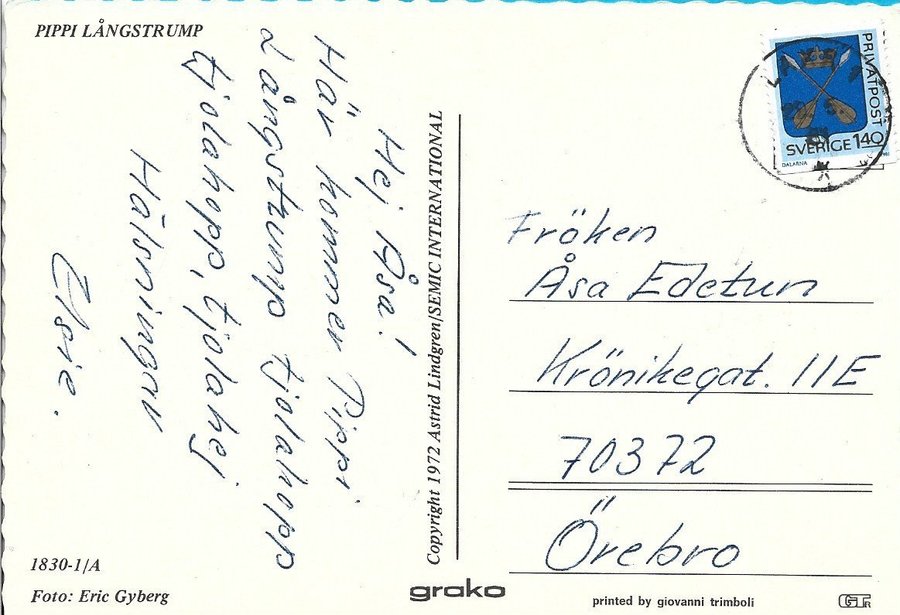 PIPPI LÅNGSTRUMP
Hej Åsa!
Här kommer Pippi
Långstrump tjolahopp
tjolahopp, tjolahej
Hälsningar
Elsie.
1830-1/A
Foto: Eric Gyberg
Copyright 1972 Astrid Lindgren/SEMIC INTERNATIONAL
grako
PRIVATPOST
SVERIGE 140
DALARNA
Fröken
Åsa Edetun
Krönikegat. 11E
70372
Örebro
printed by giovanni trimboli